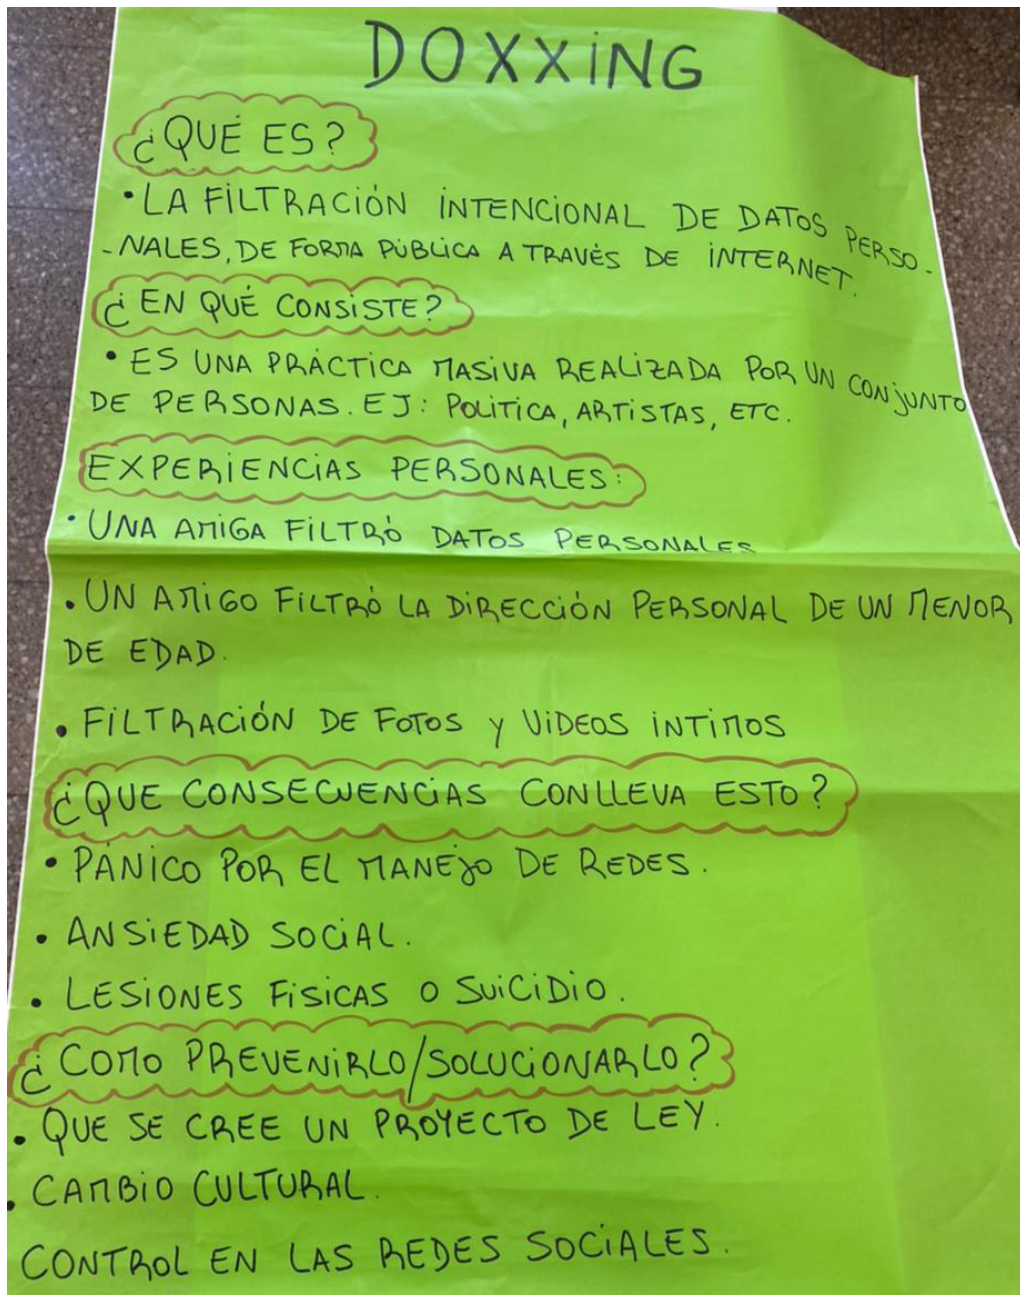 DOXXiNG
¿QUÉ ES?
• LA FiLTRACiÓN iNTENCiONAL DE DATOS PERSO-
-NALES, DE FORMA PÚBLiCA A TRAVÉS DE iNTERNET.
¿EN QUÉ CONSiSTE?
• ES UNA PRÁCTiCA MASiVA REALiZADA POR UN CONJUNTO
DE PERSONAS. EJ: POLÍTiCA, ARTiSTAS, ETC.
EXPERiENCiAS PERSONALES:
• UNA AMiGA FiLTRÓ DATOS PERSONALES
• UN AMiGO FiLTRÓ LA DiRECCiÓN PERSONAL DE UN MENOR
DE EDAD.
• FiLTRACiÓN DE FOTOS Y ViDEOS ÍNTiMOS
¿QUE CONSECUENCiAS CONLLEVA ESTO?
• PÁNiCO POR EL MANEJO DE REDES.
• ANSiEDAD SOCiAL.
• LESiONES FÍSiCAS O SUiCiDiO.
¿COMO PREVENiRLO/SOLUCiONARLO?
• QUE SE CREE UN PROYECTO DE LEY.
• CAMBiO CULTURAL.
CONTROL EN LAS REDES SOCiALES.